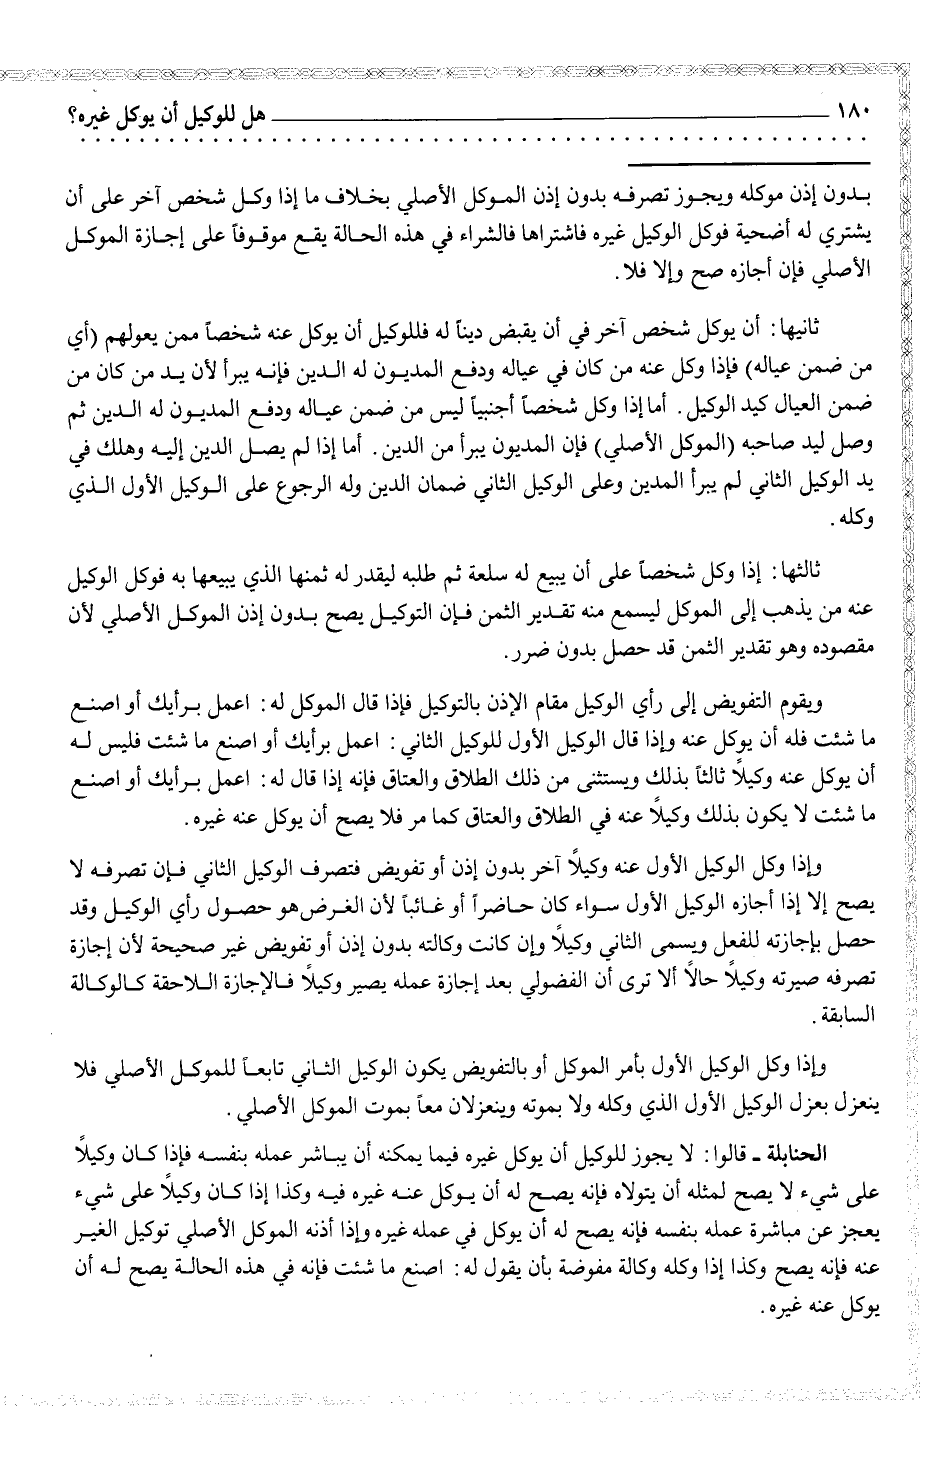 ١٨٠ هل للوكيل أن يوكل غيره؟
بدون إذن موكله ويجوز تصرفه بدون إذن الموكل الأصلي بخلاف ما إذا وكل شخص آخر على أن
يشتري له أضحية فوكل الوكيل غيره فاشتراها فالشراء في هذه الحالة يقع موقوفاً على إجازة الموكل
الأصلي فإن أجازه صح وإلا فلا.
ثانيها: أن يوكل شخص آخر في أن يقبض ديناً له فللوكيل أن يوكل عنه شخصاً ممن يعولهم (أي
من ضمن عياله) فإذا وكل عنه من كان في عياله ودفع المديون له الدين فإنه يبرأ لأن يد من كان من
ضمن العيال كيد الوكيل. أما إذا وكل شخصاً أجنبياً ليس من ضمن عياله ودفع المديون له الدين ثم
وصل ليد صاحبه (الموكل الأصلي) فإن المديون يبرأ من الدين. أما إذا لم يصل الدين إليه وهلك في
يد الوكيل الثاني لم يبرأ المدين وعلى الوكيل الثاني ضمان الدين وله الرجوع على الوكيل الأول الذي
وكله.
ثالثها: إذا وكل شخصاً على أن يبيع له سلعة ثم طلبه ليقدر له ثمنها الذي يبيعها به فوكل الوكيل
عنه من يذهب إلى الموكل ليسمع منه تقدير الثمن فإن التوكيل يصح بدون إذن الموكل الأصلي لأن
مقصوده وهو تقدير الثمن قد حصل بدون ضرر.
ويقوم التفويض إلى رأي الوكيل مقام الإذن بالتوكيل فإذا قال الموكل له: اعمل برأيك أو اصنع
ما شئت فله أن يوكل عنه وإذا قال الوكيل الأول للوكيل الثاني: اعمل برأيك أو اصنع ما شئت فليس له
أن يوكل عنه وكيلاً ثالثاً بذلك ويستثنى من ذلك الطلاق والعتاق فإنه إذا قال له: اعمل برأيك أو اصنع
ما شئت لا يكون بذلك وكيلاً عنه في الطلاق والعتاق كما مر فلا يصح أن يوكل عنه غيره.
وإذا وكل الوكيل الأول عنه وكيلاً آخر بدون إذن أو تفويض فتصرف الوكيل الثاني فإن تصرفه لا
يصح إلا إذا أجازه الوكيل الأول سواء كان حاضراً أو غائباً لأن الغرض هو حصول رأي الوكيل وقد
حصل بإجازته للفعل ويسمى الثاني وكيلاً وإن كانت وكالته بدون إذن أو تفويض غير صحيحة لأن إجازة
تصرفه صيرته وكيلاً حالاً ألا ترى أن الفضولي بعد إجازة عمله يصير وكيلاً فالإجازة اللاحقة كالوكالة
السابقة.
وإذا وكل الوكيل الأول بأمر الموكل أو بالتفويض يكون الوكيل الثاني تابعاً للموكل الأصلي فلا
ينعزل بعزل الوكيل الأول الذي وكله ولا بموته وينعزلان معاً بموت الموكل الأصلي.
الحنابلة - قالوا: لا يجوز للوكيل أن يوكل غيره فيما يمكنه أن يباشر عمله بنفسه فإذا كان وكيلاً
على شيء لا يصح لمثله أن يتولاه فإنه يصح له أن يوكل عنه غيره فيه وكذا إذا كان وكيلاً على شيء
يعجز عن مباشرة عمله بنفسه فإنه يصح له أن يوكل في عمله غيره وإذا أذنه الموكل الأصلي توكيل الغير
عنه فإنه يصح وكذا إذا وكله وكالة مفوضة بأن يقول له: اصنع ما شئت فإنه في هذه الحالة يصح له أن
يوكل عنه غيره.